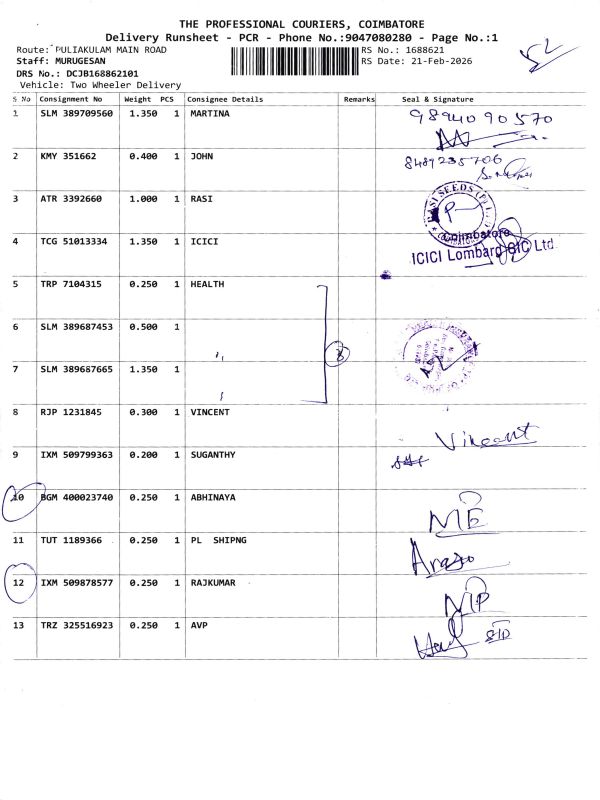 THE PROFESSIONAL COURIERS, COIMBATORE
Delivery Runsheet - PCR - Phone No.:9047080280 - Page No.:1
Route: PULIAKULAM MAIN ROAD RS No.: 1688621
Staff: MURUGESAN RS Date: 21-Feb-2026
DRS No.: DCJB168862101
Vehicle: Two Wheeler Delivery
S No Consignment No Weight PCS Consignee Details Remarks Seal & Signature
1 SLM 389709560 1.350 1 MARTINA 9894090570
2 KMY 351662 0.400 1 JOHN 8489235706
3 ATR 3392660 1.000 1 RASI RASI SEEDS (P) LTD Coimbatore
4 TCG 51013334 1.350 1 ICICI ICICI Lombard GIC Ltd
5 TRP 7104315 0.250 1 HEALTH
6 SLM 389687453 0.500 1
7 SLM 389687665 1.350 1
8 RJP 1231845 0.300 1 VINCENT Vincent
9 IXM 509799363 0.200 1 SUGANTHY
10 BGM 400023740 0.250 1 ABHINAYA
11 TUT 1189366 0.250 1 PL SHIPNG
12 IXM 509878577 0.250 1 RAJKUMAR
13 TRZ 325516923 0.250 1 AVP